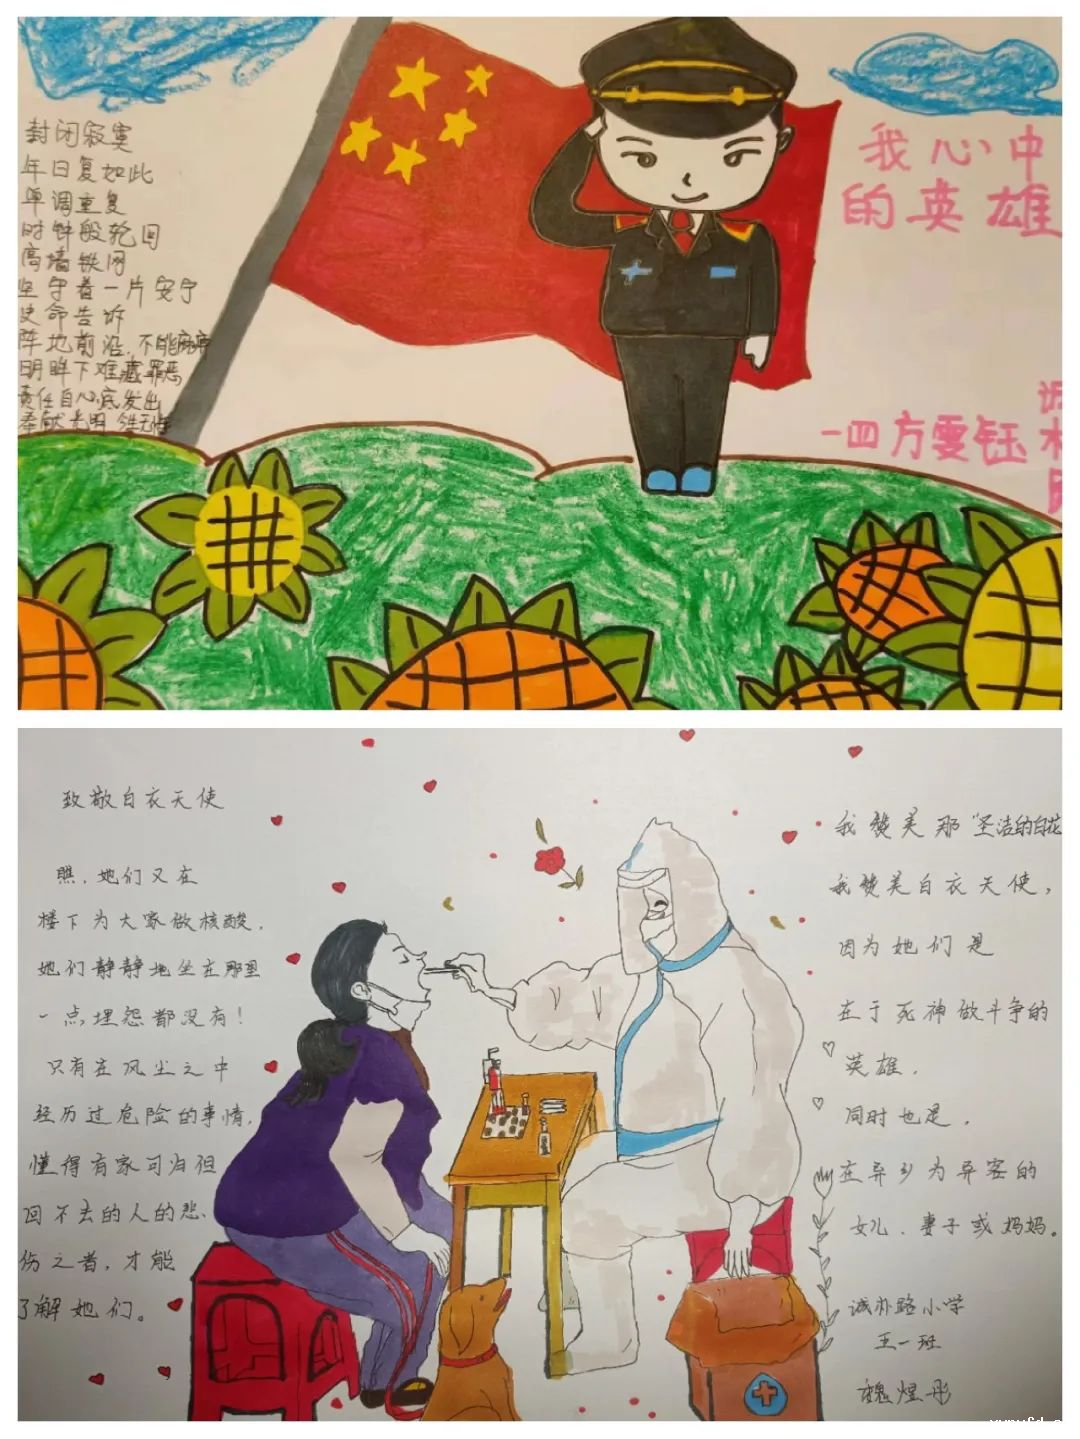 封闭寂寞
年日复如此
单调重复
时钟般轮回
高墙铁网
坚守着一片安宁
使命告诉
阵地前沿,不能麻痹
明眸下难藏罪恶
责任自心底发出
奉献光明
我心中
的英雄
一四方雯钰
致敬白衣天使
瞧,她们又在
楼下为大家做核酸,
她们静静地坐在那里
一点埋怨都没有!
只有在风尘之中
经历过危险的事情,
懂得有家可归但
回不去的人的悲、
伤之者,才能
了解她们。
我赞美那"圣洁的白花
我赞美白衣天使,
因为她们是
在于死神做斗争的
英雄,
同时也是,
在异乡为异客的
女儿、妻子或妈妈。
诚朴路小学
五一班
魏煜彤